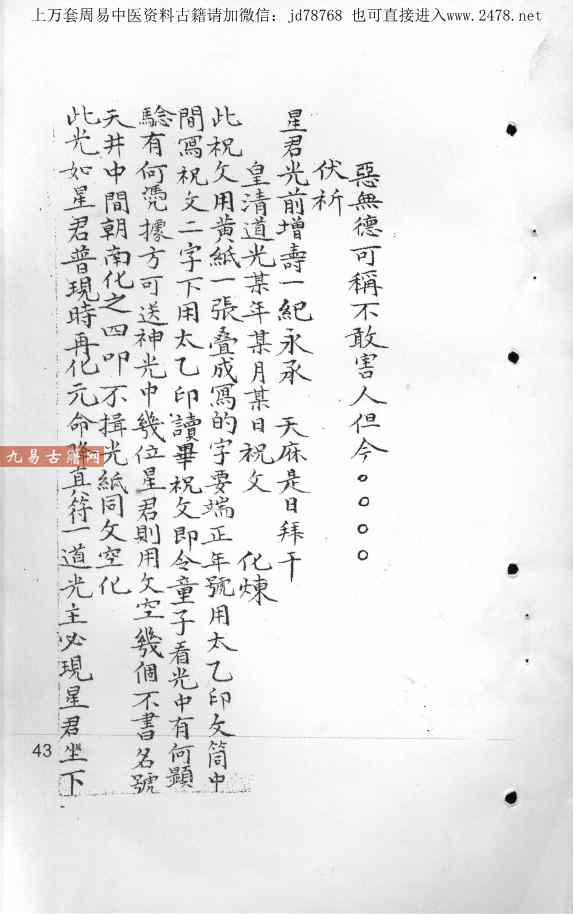 上万套周易中医资料古籍请加微信：jd78768 也可直接进入www.2478.net
惡無德可稱不敢害人但今○○○○
伏祈
星君光前增壽一紀永承 天庥是日拜干
皇清道光某年某月某日祝文 化煉
此祝文用黄紙一張叠成寫的字要端正年號用太乙印文筒中
間寫祝文二字下用太乙印讀畢祝文即令童子看光中有何顯
騐有何憑據方可送神光中幾位星君則用文空幾個不書名號
天井中間朝南化之四叩不揖光紙同文空化
此光如星君普現時再化元命 真符一道光主必現星君坐下
九易古籍网
43